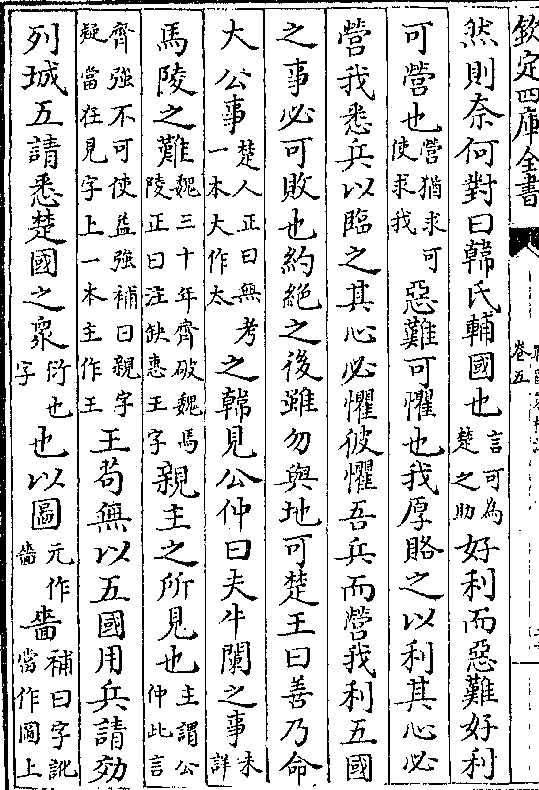 欽定四庫全書 卷五
然則奈何對曰韓氏輔國也言可為楚之助好利而惡難好利
可營也營猶求可使求我惡難可懼也我厚賂之以利其心必
營我悉兵以臨之其心必懼彼懼吾兵而營我利五國
之事必可敗也約絶之後雖勿與地可楚王曰善乃命
大公事楚人正曰無考一本大作太之韓見公仲曰夫牛闌之事未詳
馬陵之難魏三十年齊破魏馬陵正曰注缺惠王字親主之所見也主謂公仲此言
齊強不可使益強補曰親字疑當在見字上一本主作王王苟無以五國用兵請効
列城五請悉楚國之衆衍也字也以圖元作嗇嗇補曰字訛當作圖上